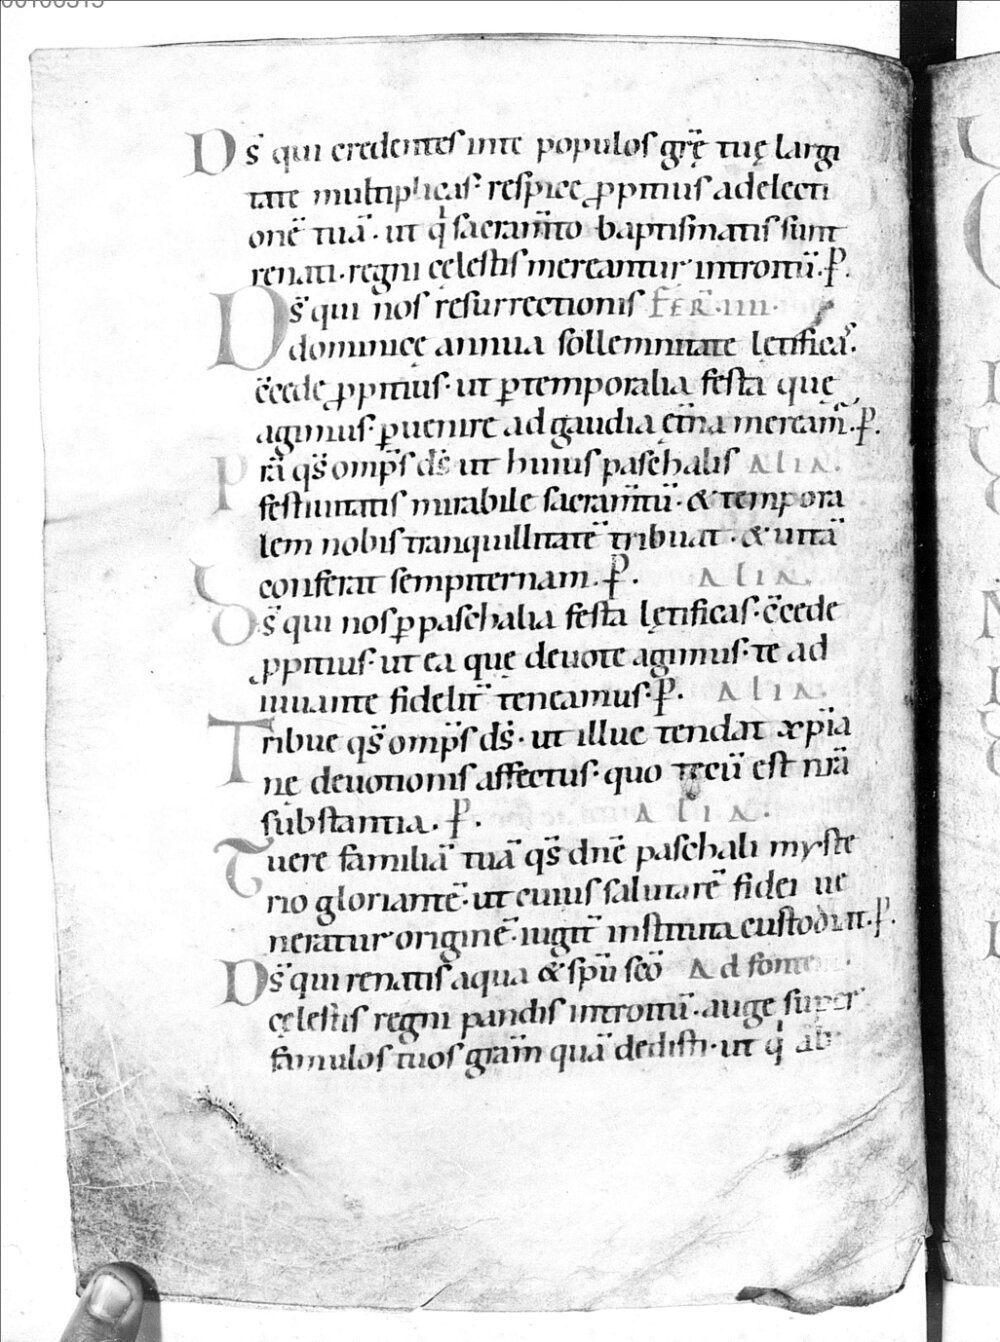 Ds̄ qui credentes inte populos grę̄ tuę largi
tate multiplicas· respice ꝓpitius adelecti
onē tuā· ut q̍ sacram̄to baptismatis sunt
renati· regni cęlestis mereantur introitū· ꝑ.
Ds̄ qui nos resurrectionis FER· IIII·
dominicę annua sollemnitate lętificas·
c̄cede ꝓpitius· ut ꝑtemporalia festa quę
agimus· ꝑuenire ad gaudia et̄na meream̄· ꝑ.
Prā qs̄ omps̄ ds̄ ut huius paschalis ALIA.
festiuitatis mirabile sacram̄tū· & tempora
lem nobis tranquillitatē tribuat· & uitā
conferat sempiternam· ꝑ. ALIA.
Ds̄ qui nos ꝑ paschalia festa lętificas· c̄cede
ꝓpitius· ut ea quę deuote agimus· te ad
iuuante fidelit̄ teneamus· ꝑ. ALIA.
Tribue qs̄ omps̄ ds̄· ut illuc tendat xp̄ia
nę deuotionis affectus· quo tecū est nrā
substantia. ꝑ. ALIA.
Tuere familiā tuā qs̄ dnē paschali myste
rio gloriantē· ut cuius salutarē fidei ue
neratur originē· iugit̄ instituta custodiat· ꝑ.
Ds̄ qui renatis aqua & spū scō Ad fontem.
cęlestis regni pandis introitū· auge super
famulos tuos gram̄ quā dedisti· ut q̍ ab